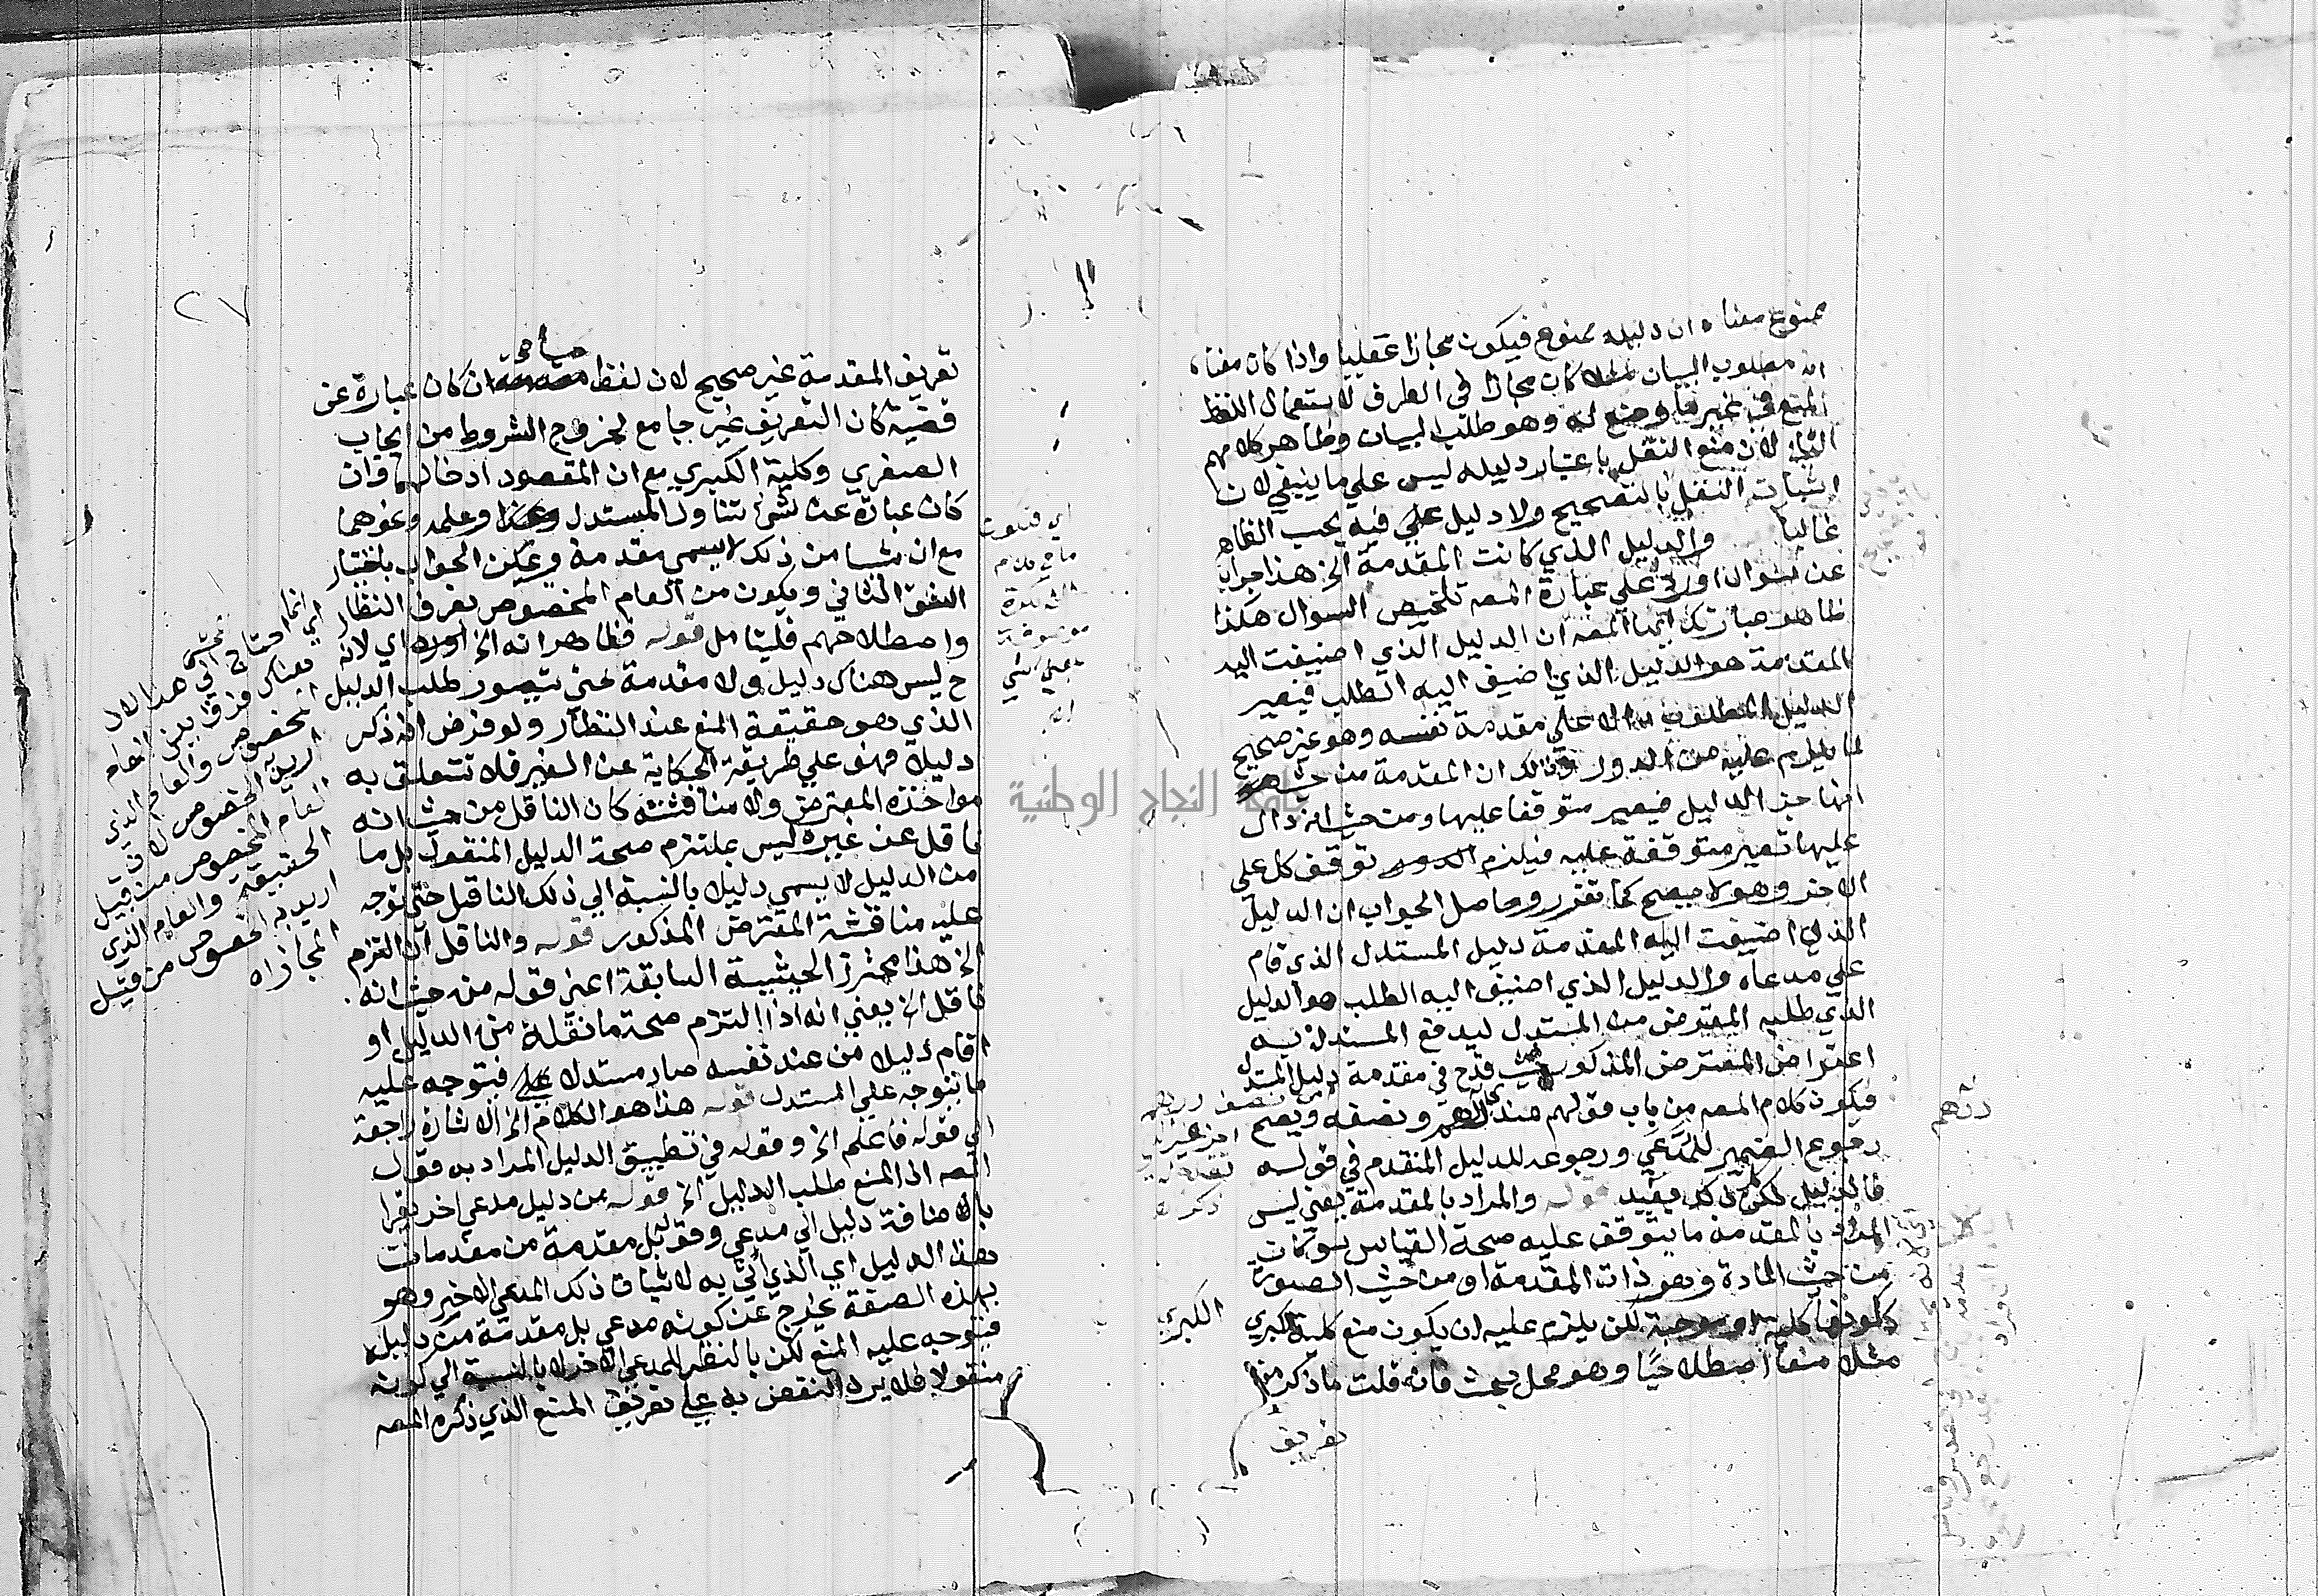 ممنوع معناه ان دليله ممنوع فيكون مجازا عقليا واذا كان معناه
انه مطلوب البيان مثلا كان مجازا في الطرف لاستعمال اللفظ
المنع في غير ما وضع له وهو طلب البيان وظاهر كلامهم
لان منع النقل باعتبار دليله ليس علي ما ينبغي لان
اثبات النقل بالتصحيح ولا دليل علي فيه بحسب الظاهر
غالبا والدليل الذي كانت المقدمة الخ هذا جواب
عن سوال اورد علي عبارة المصه تلخيص السوال هكذا
ظاهر عبارتك ايها المصه ان الدليل الذي اضيفت اليه
المقدمة هو الدليل الذي اضيف اليه الطلب فيصير
الدليل المطلوب دالا علي مقدمة نفسه وهو غير صحيح
لما يلزم عليه من الدور وذلك ان المقدمة من حيث
انها جز الدليل فيصير متوقفا عليها ومن حيث انه دال
عليها تصير متوقفة عليه فيلزم الدور توقف كل علي
الاخر وهو لا يصح كما تقرر وحاصل الجواب ان الدليل
الذي اضيفت اليه المقدمة دليل المستدل الذي قام
علي مدعاه والدليل الذي اضيف اليه الطلب هو الدليل
الذي طلبه المعترض من المستدل ليدفع المستدل به
اعتراض المعترض المذكور حيث قدح في مقدمة دليل المستدل
فيكون كلام المصه من باب قولهم عندي درهم ونصفه ويصح
رجوع الضمير للمدعي ورجوعه للدليل المتقدم في قوله
فالدليل لكن ذلك مقيد قوله والمراد بالمقدمة يعني ليس
المراد بالمقدمة ما يتوقف عليه صحة القياس سوا كان
من حيث المادة وهو ذات المقدمة او من حيث الصورة
ككونها كلية او موجبة لكن يلزم عليه ان يكون منع كلية الكبري
مثلا منعا اصطلاحيا وهو محل بحث فان قلت ما ذكر من
تعريف
درهم
الكبري
٢٧
تعريف المقدمة غير صحيح لان لفظ ما في ان كان عبارة عن
قضية كان التعريف غير جامع لخروج الشروط من ايجاب
الصغري وكلية الكبري مع ان المقصود ادخالها وان
كان عبارة عن شئ تناول المستدل وعلمه ونحوهما
مع ان شيا من ذلك لا يسمي مقدمة ويمكن الجواب باختيار
الشق الثاني ويكون من العام المخصوص بعرف النظار
واصطلاحهم فليتامل قوله فظاهر انه الخ اي لانه
ح ليس هناك دليل ولا مقدمة حتي يتصور طلب الدليل
الذي هو حقيقة المنع عند النظار ولو فرض انه ذكر
دليلا فهو علي طريقة الحكاية عن الغير فلا تتعلق به
مواخذة المعترض ولا مناقشته كان الناقل من حيث انه
ناقل عن غيره ليس بملتزم صحة الدليل المنقول بل ما
من الدليل لا يسمي دليلا بالنسبة الي ذلك الناقل حتي توجه
عليه مناقشة المعترض المذكور قوله والناقل ان التزم
الخ هذا محترز الحيثية السابقة اعني قوله من حيث انه
ناقل الخ يعني انه اذا التزم صحة ما نقله من الدليل او
اقام دليلا من عند نفسه صار مستدلا فيتوجه عليه
ما يتوجه علي المستدل قوله هذا هو الكلام الخ الاشارة راجعة
الي قوله فاعلم الخ وقوله في تطبيق الدليل المراد به قول
المصه اذ المنع طلب الدليل الخ قوله من دليل مدعي اخر يقرا
بالاضافة دليل الي مدعي وقوله بل مقدمة من مقدمات
هذا الدليل اي الذي اتي به لاثبات ذلك المدعي الاخير وهو
بهذه الصفة يخرج عن كونه مدعي بل مقدمة من دليل
فيتوجه عليه المنع لكن بالنظر للمدعي الاخر لا بالنسبة الي كونه
منقولا فلا يرد النقض به علي تعريف المنع الذي ذكره المصه
اي انما احتاج الي هذا لان
هناك فرق بين العام
المخصوص والعام الذي
اريد به الخصوص لان
العام المخصوص من قبيل
الحقيقة والعام الذي
اريد به الخصوص من قبيل
المجاز اه
جامعة النجاح الوطنية